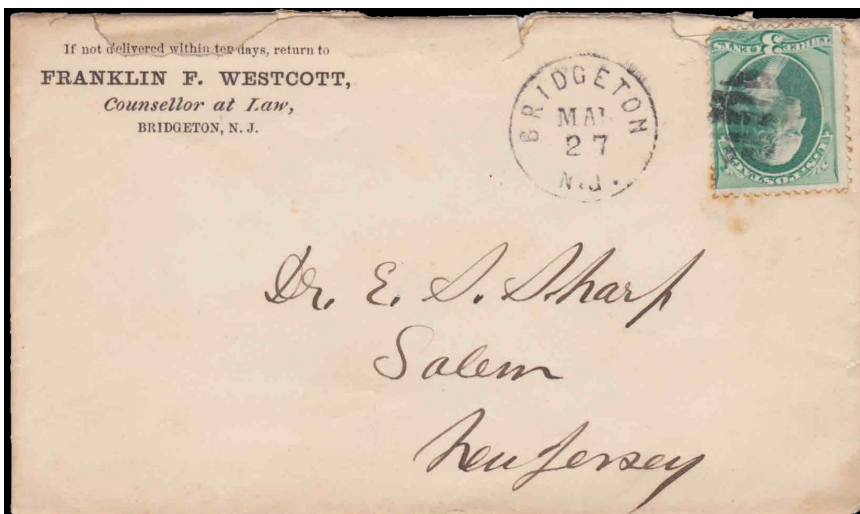 If not delivered within ten days, return to
FRANKLIN F. WESTCOTT,
Counsellor at Law,
BRIDGETON, N. J.
BRIDGETON
27
N.J.
Dr. E. S. Sharp
Salem
New Jersey